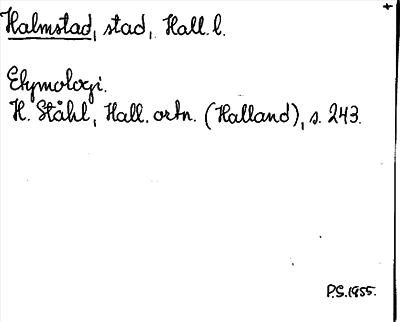 +
Halmstad, stad, Hall. l.
Etymologi.
H. Ståhl, Hall. ortn. (Halland), s. 243.
P.S. 1955.